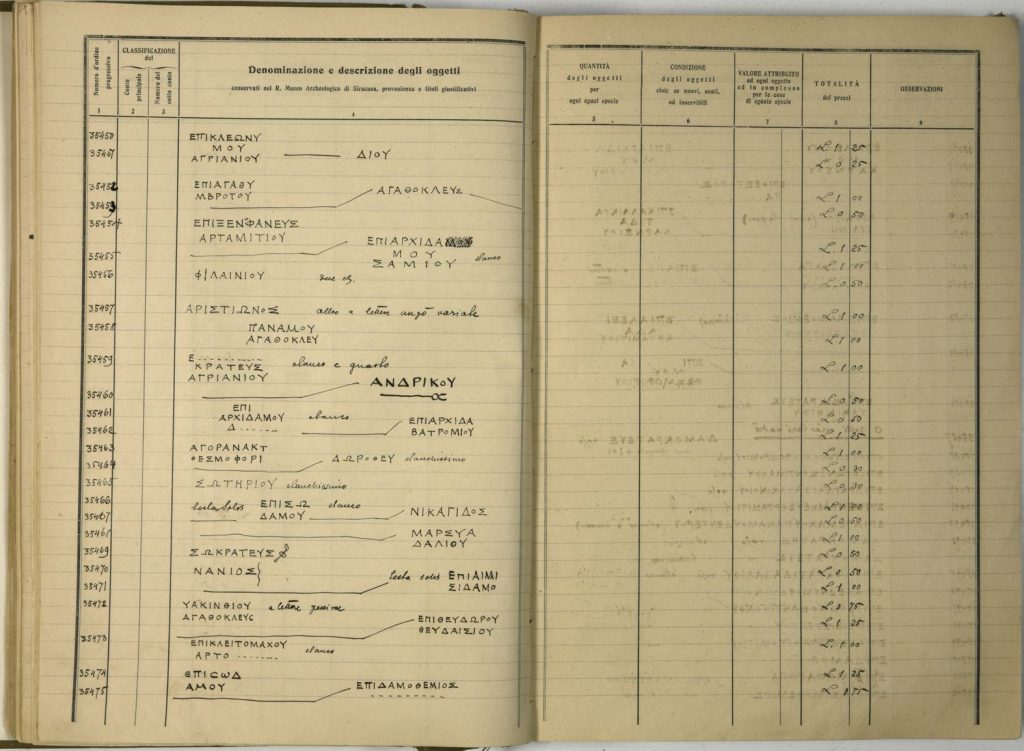 Numero d'ordine progressivo
CLASSIFICAZIONE
del
Conto principale
Numero del sotto conto
Denominazione e descrizione degli oggetti
conservati nel R. Museo Archeologico di Siracusa, provenienza e titoli giustificativi
QUANTITÀ
degli oggetti
per
ogni egual specie
CONDIZIONE
degli oggetti
cioè se nuovi, usati,
od inservibili
VALORE ATTRIBUITO
ad ogni oggetto
od in complesso
per le cose
di eguale specie
TOTALITÀ
dei prezzi
OSSERVAZIONI
1 2 3 4 5 6 7 8 9
35450 ΕΠΙΚΛΕΩΝΥ L. 1 25
ΜΟΥ
35451 ΑΓΡΙΑΝΙΟΥ ΔΙΟΥ L. 0 25
35452 ΕΠΙΑΓΑΘΥ ΑΓΑΘΟΚΛΕΥΣ L. 1 00
ΜΒΡΟΤΟΥ
35453 L. 0 50
35454 ΕΠΙΞΕΝΟΦΑΝΕΥΣ
ΑΡΤΑΜΙΤΙΟΥ ΕΠΙΑΡΧΙΔΑ L. 1 25
35455 ΜΟΥ
ΣΑΜΙΟΥ
35456 ΦΙΛΑΙΝΙΟΥ L. 0 50
35457 ΑΡΙΣΤΙΩΝΟΣ altro a lettere variate L. 1 00
35458 ΠΑΝΑΜΟΥ L. 1 00
ΑΓΑΘΟΚΛΕΥ
35459 Ε............ e guasto L. 1 00
ΚΡΑΤΕΥΣ
ΑΓΡΙΑΝΙΟΥ ΑΝΔΡΙΚΟΥ
35460 L. 0 50
35461 ΕΠΙ L. 0 50
ΑΡΧΙΔΑΜΟΥ ΕΠΙΑΡΧΙΔΑ
35462 Δ...... ΒΑΤΡΟΜΙΟΥ L. 1 25
35463 ΑΓΟΡΑΝΑΚΤ L. 1 00
35464 ΘΕΣΜΟΦΟΡΙ ΔΩΡΟΘΕΥ L. 0 30
35465 ΣΩΤΗΡΙΟΥ L. 0 30
35466 testa Solis ΕΠΙΣΩ L. 1 00
35467 ΔΑΜΟΥ ΝΙΚΑΓΙΔΟΣ L. 0 50
35468 ΜΑΡΣΥΑ L. 1 00
ΔΑΛΙΟΥ
35469 ΣΩΚΡΑΤΕΥΣ L. 0 50
35470 ΝΑΝΙΟΣ L. 0 50
35471 testa solis ΕΠΙΑΙΜΙ L. 1 00
ΣΙΔΑΜΟ
35472 ΥΑΚΙΝΘΙΟΥ a lettere pessime L. 0 75
ΑΓΑΘΟΚΛΕΥΣ ΕΠΙΘΕΥΔΩΡΟΥ L. 1 25
ΘΕΥΔΑΙΣΙΟΥ
35473 ΕΠΙΚΛΕΙΤΟΜΑΧΟΥ L. 1 00
ΑΡΤΟ........
35474 ΕΠΙCΩΔ L. 1 25
35475 ΑΜΟΥ ΕΠΙΔΑΜΟΘΕΜΙΟΣ L. 0 75